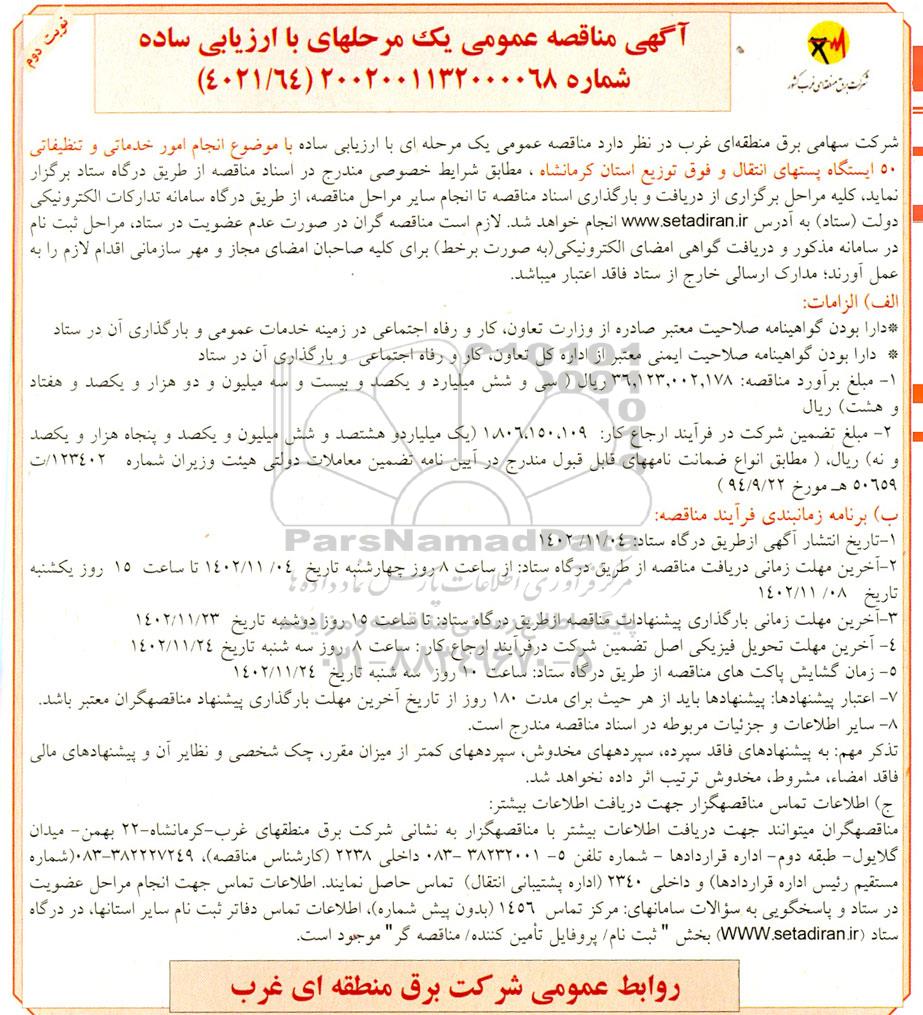 نوبت دوم
آگهی مناقصه عمومی یک مرحلهای با ارزیابی ساده
شماره ۲۰۰۲۰۰۱۱۳۲۰۰۰۰۶۸ (۴۰۲۱/۶۴)
شرکت برق منطقه‌ای غرب کشور
شرکت سهامی برق منطقه‌ای غرب در نظر دارد مناقصه عمومی یک مرحله ای با ارزیابی ساده با موضوع انجام امور خدماتی و تنظیفاتی
۵۰ ایستگاه پستهای انتقال و فوق توزیع استان کرمانشاه ، مطابق شرایط خصوصی مندرج در اسناد مناقصه از طریق درگاه ستاد برگزار
نماید، کلیه مراحل برگزاری از دریافت و بارگذاری اسناد مناقصه تا انجام سایر مراحل مناقصه، از طریق درگاه سامانه تدارکات الکترونیکی
دولت (ستاد) به آدرس www.setadiran.ir انجام خواهد شد. لازم است مناقصه گران در صورت عدم عضویت در ستاد، مراحل ثبت نام
در سامانه مذکور و دریافت گواهی امضای الکترونیکی(به صورت برخط) برای کلیه صاحبان امضای مجاز و مهر سازمانی اقدام لازم را به
عمل آورند؛ مدارک ارسالی خارج از ستاد فاقد اعتبار میباشد.
الف) الزامات:
*دارا بودن گواهینامه صلاحیت معتبر صادره از وزارت تعاون، کار و رفاه اجتماعی در زمینه خدمات عمومی و بارگذاری آن در ستاد
* دارا بودن گواهینامه صلاحیت ایمنی معتبر از اداره کل تعاون، کار و رفاه اجتماعی و بارگذاری آن در ستاد
۱- مبلغ برآورد مناقصه: ۳۶,۱۲۳,۰۰۲,۱۷۸ ریال ( سی و شش میلیارد و یکصد و بیست و سه میلیون و دو هزار و یکصد و هفتاد
و هشت) ریال
۲- مبلغ تضمین شرکت در فرآیند ارجاع کار: ۱،۸۰۶،۱۵۰،۱۰۹ (یک میلیاردو هشتصد و شش میلیون و یکصد و پنجاه هزار و یکصد
و نه) ریال، ( مطابق انواع ضمانت نامههای قابل قبول مندرج در آیین نامه تضمین معاملات دولتی هیئت وزیران شماره ۱۲۳۴۰۲/ت
۵۰۶۵۹ هـ مورخ ۹۴/۹/۲۲ )
ب) برنامه زمانبندی فرآیند مناقصه:
۱-تاریخ انتشار آگهی ازطریق درگاه ستاد: ۱۴۰۲/۱۱/۰۴
۲-آخرین مهلت زمانی دریافت مناقصه از طریق درگاه ستاد: از ساعت ۸ روز چهارشنبه تاریخ ۱۴۰۲/۱۱ /۰۴ تا ساعت ۱۵ روز یکشنبه
تاریخ ۱۴۰۲/۱۱ /۰۸
۳-آخرین مهلت زمانی بارگذاری پیشنهادات مناقصه ازطریق درگاه ستاد: تا ساعت ۱۵ روز دوشنبه تاریخ ۱۴۰۲/۱۱/۲۳
۴- آخرین مهلت تحویل فیزیکی اصل تضمین شرکت درفرآیند ارجاع کار : ساعت ۸ روز سه شنبه تاریخ ۱۴۰۲/۱۱/۲۴
۵- زمان گشایش پاکت های مناقصه از طریق درگاه ستاد: ساعت ۱۰ روز سه شنبه تاریخ ۱۴۰۲/۱۱/۲۴
۷- اعتبار پیشنهادها: پیشنهادها باید از هر حیث برای مدت ۱۸۰ روز از تاریخ آخرین مهلت بارگذاری پیشنهاد مناقصهگران معتبر باشد.
۸- سایر اطلاعات و جزئیات مربوطه در اسناد مناقصه مندرج است.
تذکر مهم: به پیشنهادهای فاقد سپرده، سپردههای مخدوش، سپردههای کمتر از میزان مقرر، چک شخصی و نظایر آن و پیشنهادهای مالی
فاقد امضاء، مشروط، مخدوش ترتیب اثر داده نخواهد شد.
ج) اطلاعات تماس مناقصهگزار جهت دریافت اطلاعات بیشتر:
مناقصهگران میتوانند جهت دریافت اطلاعات بیشتر با مناقصهگزار به نشانی شرکت برق منطقهای غرب-کرمانشاه-۲۲ بهمن- میدان
گلایول- طبقه دوم- اداره قراردادها - شماره تلفن ۵- ۳۸۲۳۲۰۰۱ -۰۸۳ داخلی ۲۲۳۸ (کارشناس مناقصه)، ۳۸۲۲۲۷۲۴۹-۰۸۳(شماره
مستقیم رئیس اداره قراردادها) و داخلی ۲۳۴۰ (اداره پشتیبانی انتقال) تماس حاصل نمایند. اطلاعات تماس جهت انجام مراحل عضویت
در ستاد و پاسخگویی به سؤالات سامانهای: مرکز تماس ۱۴۵۶ (بدون پیش شماره)، اطلاعات تماس دفاتر ثبت نام سایر استانها، در درگاه
ستاد (WWW.setadiran.ir) بخش " ثبت نام/ پروفایل تأمین کننده/ مناقصه گر" موجود است.
روابط عمومی شرکت برق منطقه ای غرب
ParsNamadData
مرکز فرآوری اطلاعات پارس نماد داده ها
۰۲۱-۸۸۳۴۹۶۷۰-۵